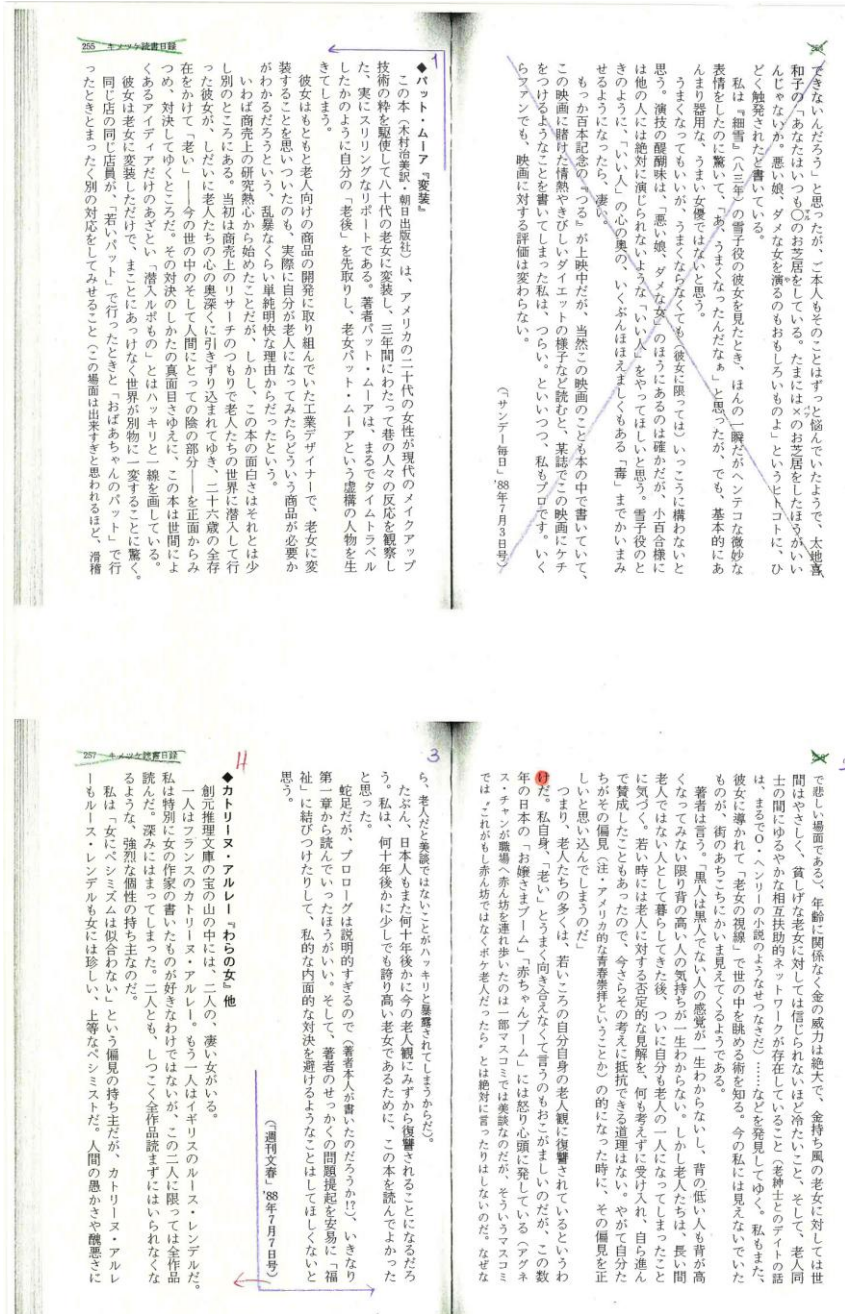 できないんだろう」と思ったが、ご本人もそのことはずっと悩んでいたようで、太地喜
和子の「あなたはいつも〇のお芝居をしている。たまには×のお芝居をしたほうがいい
んじゃないか。悪い娘、ダメな女を演るのもおもしろいものよ」というヒトコトに、ひ
どく触発されたと書いている。
私は『細雪』（八三年）の雪子役の彼女を見たとき、ほんの一瞬だがヘンテコな微妙な
表情をしたのに驚いて、「あ、うまくなったんだなぁ」と思ったが、でも、基本的にあ
んまり器用な、うまい女優ではないと思う。
うまくなってもいいが、うまくならなくても（彼女に限っては）いっこうに構わないと
思う。演技の醍醐味は、「悪い娘、ダメな女」のほうにあるのは確かだが、小百合様に
は他の人には絶対に演じられないような「いい人」をやってほしいと思う。雪子役のと
きのように、「いい人」の心の奥の、いくぶんほほえましくもある「毒」までかいまみ
せるようになったら、凄い。
もっか百本記念の『つる』が上映中だが、当然この映画のことも本の中で書いていて、
この映画に賭けた情熱やきびしいダイエットの様子など読むと、某誌でこの映画にケチ
をつけるようなことを書いてしまった私は、つらい。といいつつ、私もプロです。いく
らファンでも、映画に対する評価は変わらない。
（「サンデー毎日」'88年7月3日号）
255 キメツケ読書日録
1
◆パット・ムーア『変装』
この本（木村治美訳・朝日出版社）は、アメリカの二十代の女性が現代のメイクアップ
技術の粋を駆使して八十代の老女に変装し、三年間にわたって巷の人々の反応を観察し
た、実にスリリングなリポートである。著者パット・ムーアは、まるでタイムトラベル
したかのように自分の「老後」を先取りし、老女パット・ムーアという虚構の人物を生
きてしまう。
彼女はもともと老人向けの商品の開発に取り組んでいた工業デザイナーで、老女に変
装することを思いついたのも、実際に自分が老人になってみたらどういう商品が必要か
がわかるだろうという、乱暴なくらい単純明快な理由からだったという。
いわば商売上の研究熱心から始めたことだが、しかし、この本の面白さはそれとは少
し別のところにある。当初は商売上のリサーチのつもりで老人たちの世界に潜入して行
った彼女が、しだいに老人たちの心の奥深くに引きずり込まれてゆき、二十六歳の全存
在をかけて「老い」――今の世の中のそして人間にとっての陰の部分――を正面からみ
つめ、対決してゆくところだ。その対決のしかたの真面目さゆえに、この本は世間によ
くあるアイディアだけのあざとい「潜入ルポもの」とはハッキリと一線を画している。
彼女は老女に変装しただけで、まことにあっけなく世界が別物に一変することに驚く。
同じ店の同じ店員が、「若いパット」で行ったときと「おばあちゃんのパット」で行
ったときとまったく別の対応をしてみせること（この場面は出来すぎと思われるほど、滑稽
で悲しい場面である）、年齢に関係なく金の威力は絶大で、金持ち風の老女に対しては世
間はやさしく、貧しげな老女に対しては信じられないほど冷たいこと、そして、老人同
士の間にゆるやかな相互扶助的ネットワークが存在していること（老紳士とのデイトの話
は、まるでO・ヘンリーの小説のようなせつなさだ）……などを発見してゆく。私もまた、
彼女に導かれて「老女の視線」で世の中を眺める術を知る。今の私には見えないでいた
ものが、街のあちこちにかいま見えてくるようである。
著者は言う。「黒人は黒人でない人の感覚が一生わからないし、背の低い人も背が高
くなってみない限り背の高い人の気持ちが一生わからない。しかし老人たちは、長い間
老人ではない人として暮らしてきた後、ついに自分も老人の一人になってしまったこと
に気づく。若い時には老人に対する否定的な見解を、何も考えずに受け入れ、自ら進ん
で賛成したこともあったので、今さらその考えに抵抗できる道理はない。やがて自分た
ちがその偏見（注・アメリカ的な青春崇拝ということか）の的になった時に、その偏見を正
しいと思い込んでしまうのだ」
つまり、老人たちの多くは、若いころの自分自身の老人観に復讐されているというわ
けだ。私自身、「老い」とうまく向き合えなくて言うのもおこがましいのだが、この数
年の日本の「お嬢さまブーム」「赤ちゃんブーム」には怒り心頭に発している（アグネ
ス・チャンが職場へ赤ん坊を連れ歩いたのは一部マスコミでは美談なのだが、そういうマスコミ
では〝これがもし赤ん坊ではなくボケ老人だったら〟とは絶対に言ったりはしないのだ。なぜな
257 キメツケ読書日録
3
ら、老人だと美談ではないことがハッキリと暴露されてしまうからだ）。
たぶん、日本人もまた何十年後かに今の老人観にみずから復讐されることになるだろ
う。私は、何十年後かに少しでも誇り高い老女であるために、この本を読んでよかった
と思った。
蛇足だが、プロローグは説明的すぎるので（著者本人が書いたのだろうか!?）、いきなり
第一章から読んでいったほうがいい。そして、著者のせっかくの問題提起を安易に「福
祉」に結びつけたりして、私的な内面的な対決を避けるようなことはしてほしくないと
思う。
（「週刊文春」'88年7月7日号）
◆カトリーヌ・アルレー『わらの女』他
創元推理文庫の宝の山の中には、二人の、凄い女がいる。
一人はフランスのカトリーヌ・アルレー。もう一人はイギリスのルース・レンデルだ。
私は特別に女の作家の書いたものが好きなわけではないが、この二人に限っては全作品
読んだ。深みにはまってしまった。二人とも、しつこく全作品読まずにはいられなくな
るような、強烈な個性の持ち主なのだ。
私は「女にペシミズムは似合わない」という偏見の持ち主だが、カトリーヌ・アルレ
ーもルース・レンデルも女には珍しい、上等なペシミストだ。人間の愚かさや醜悪さに